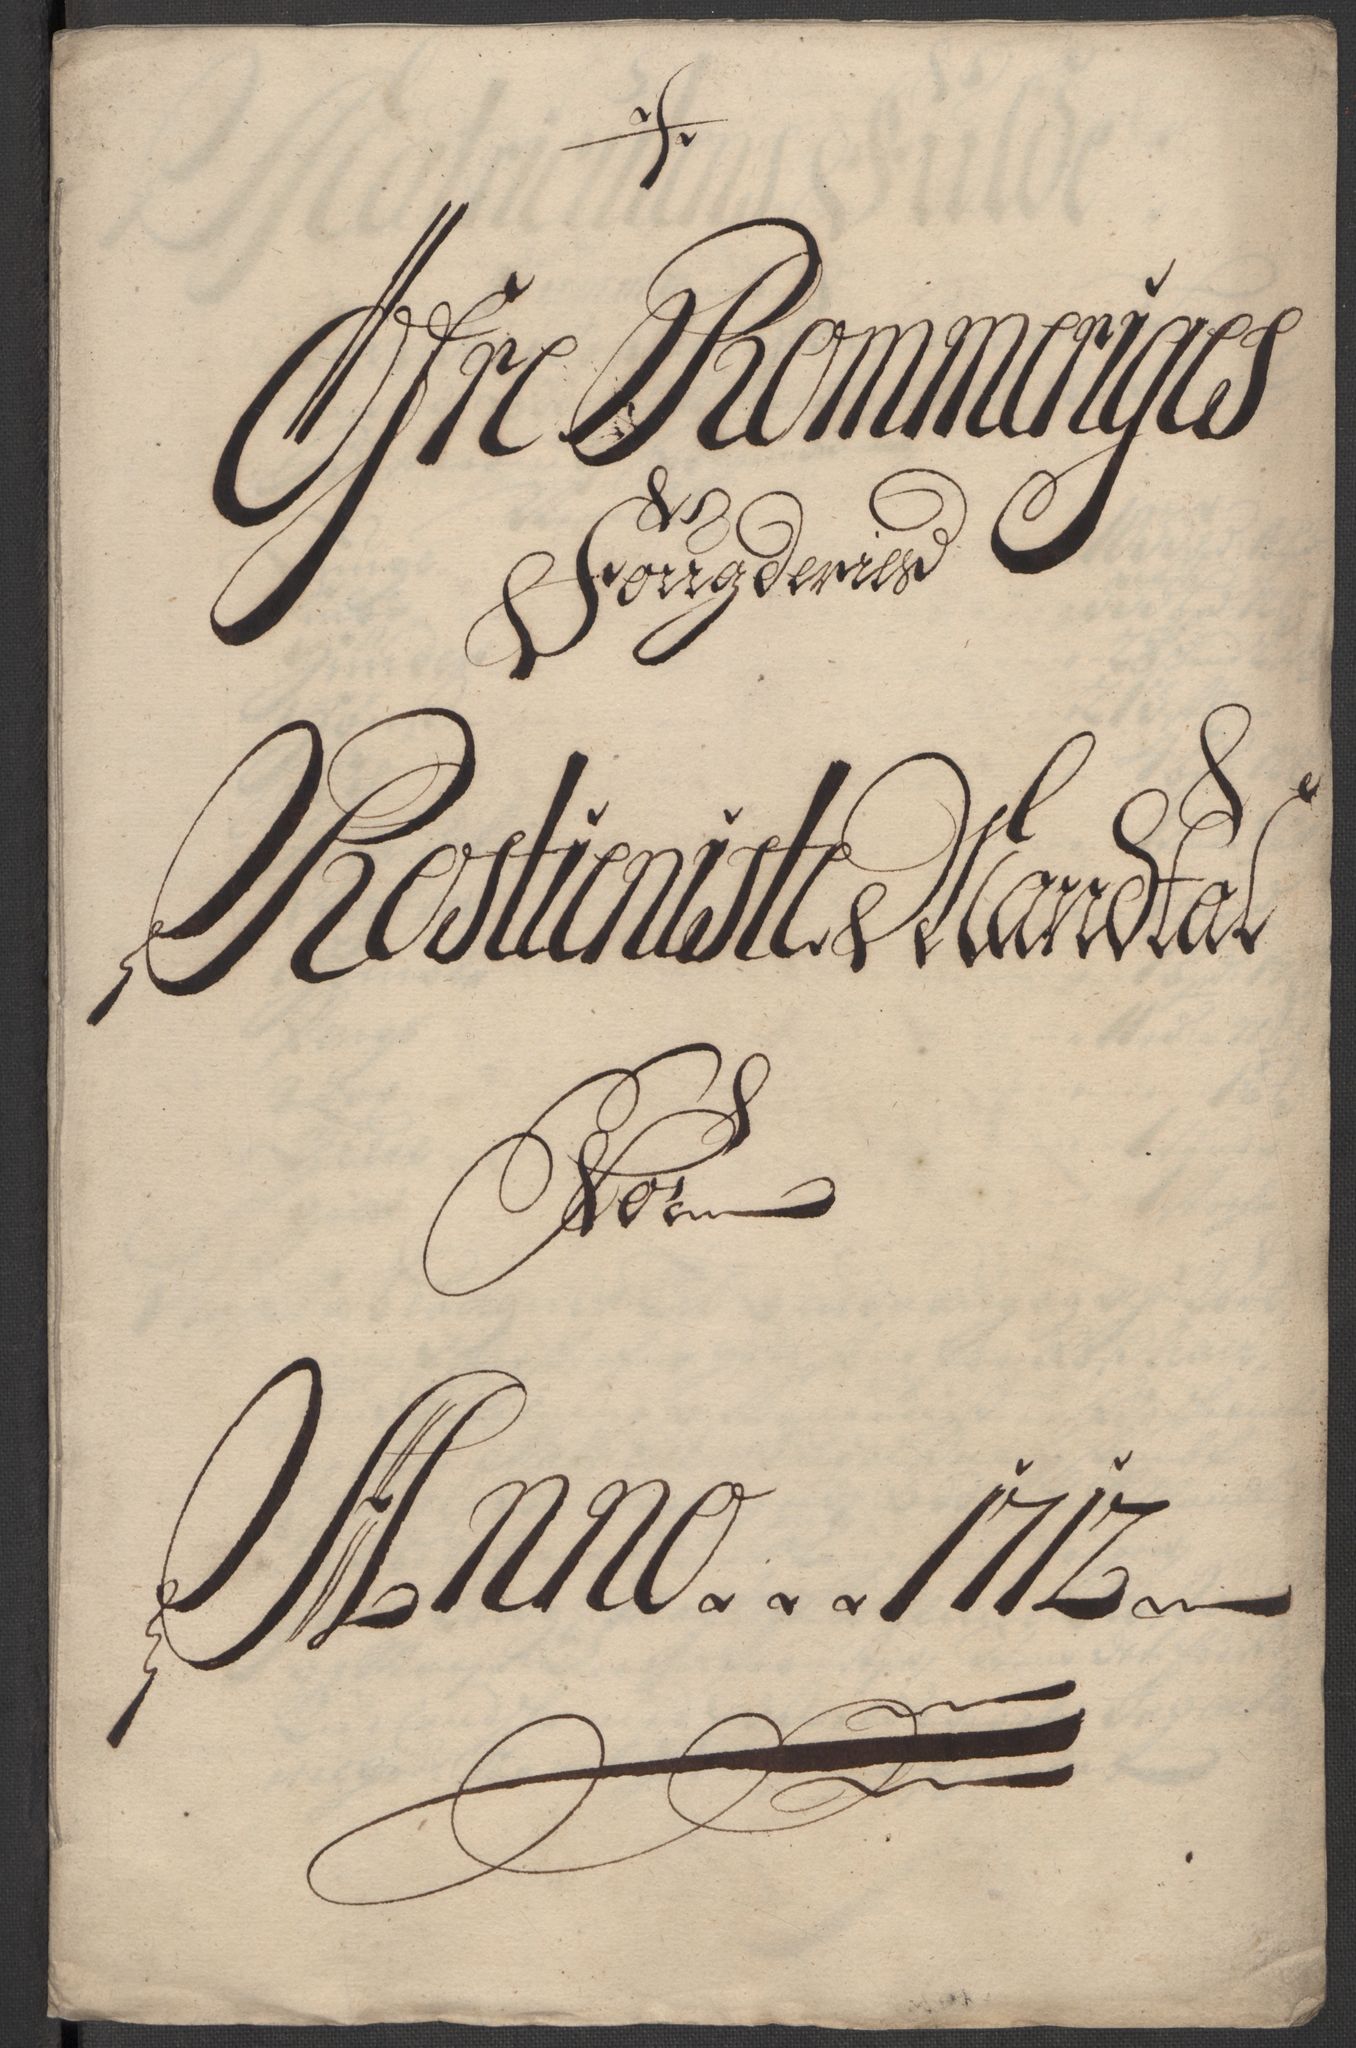 Øfre Rommeriges
Fougderies
Rostieniste Mandtal
For
Anno... 1712